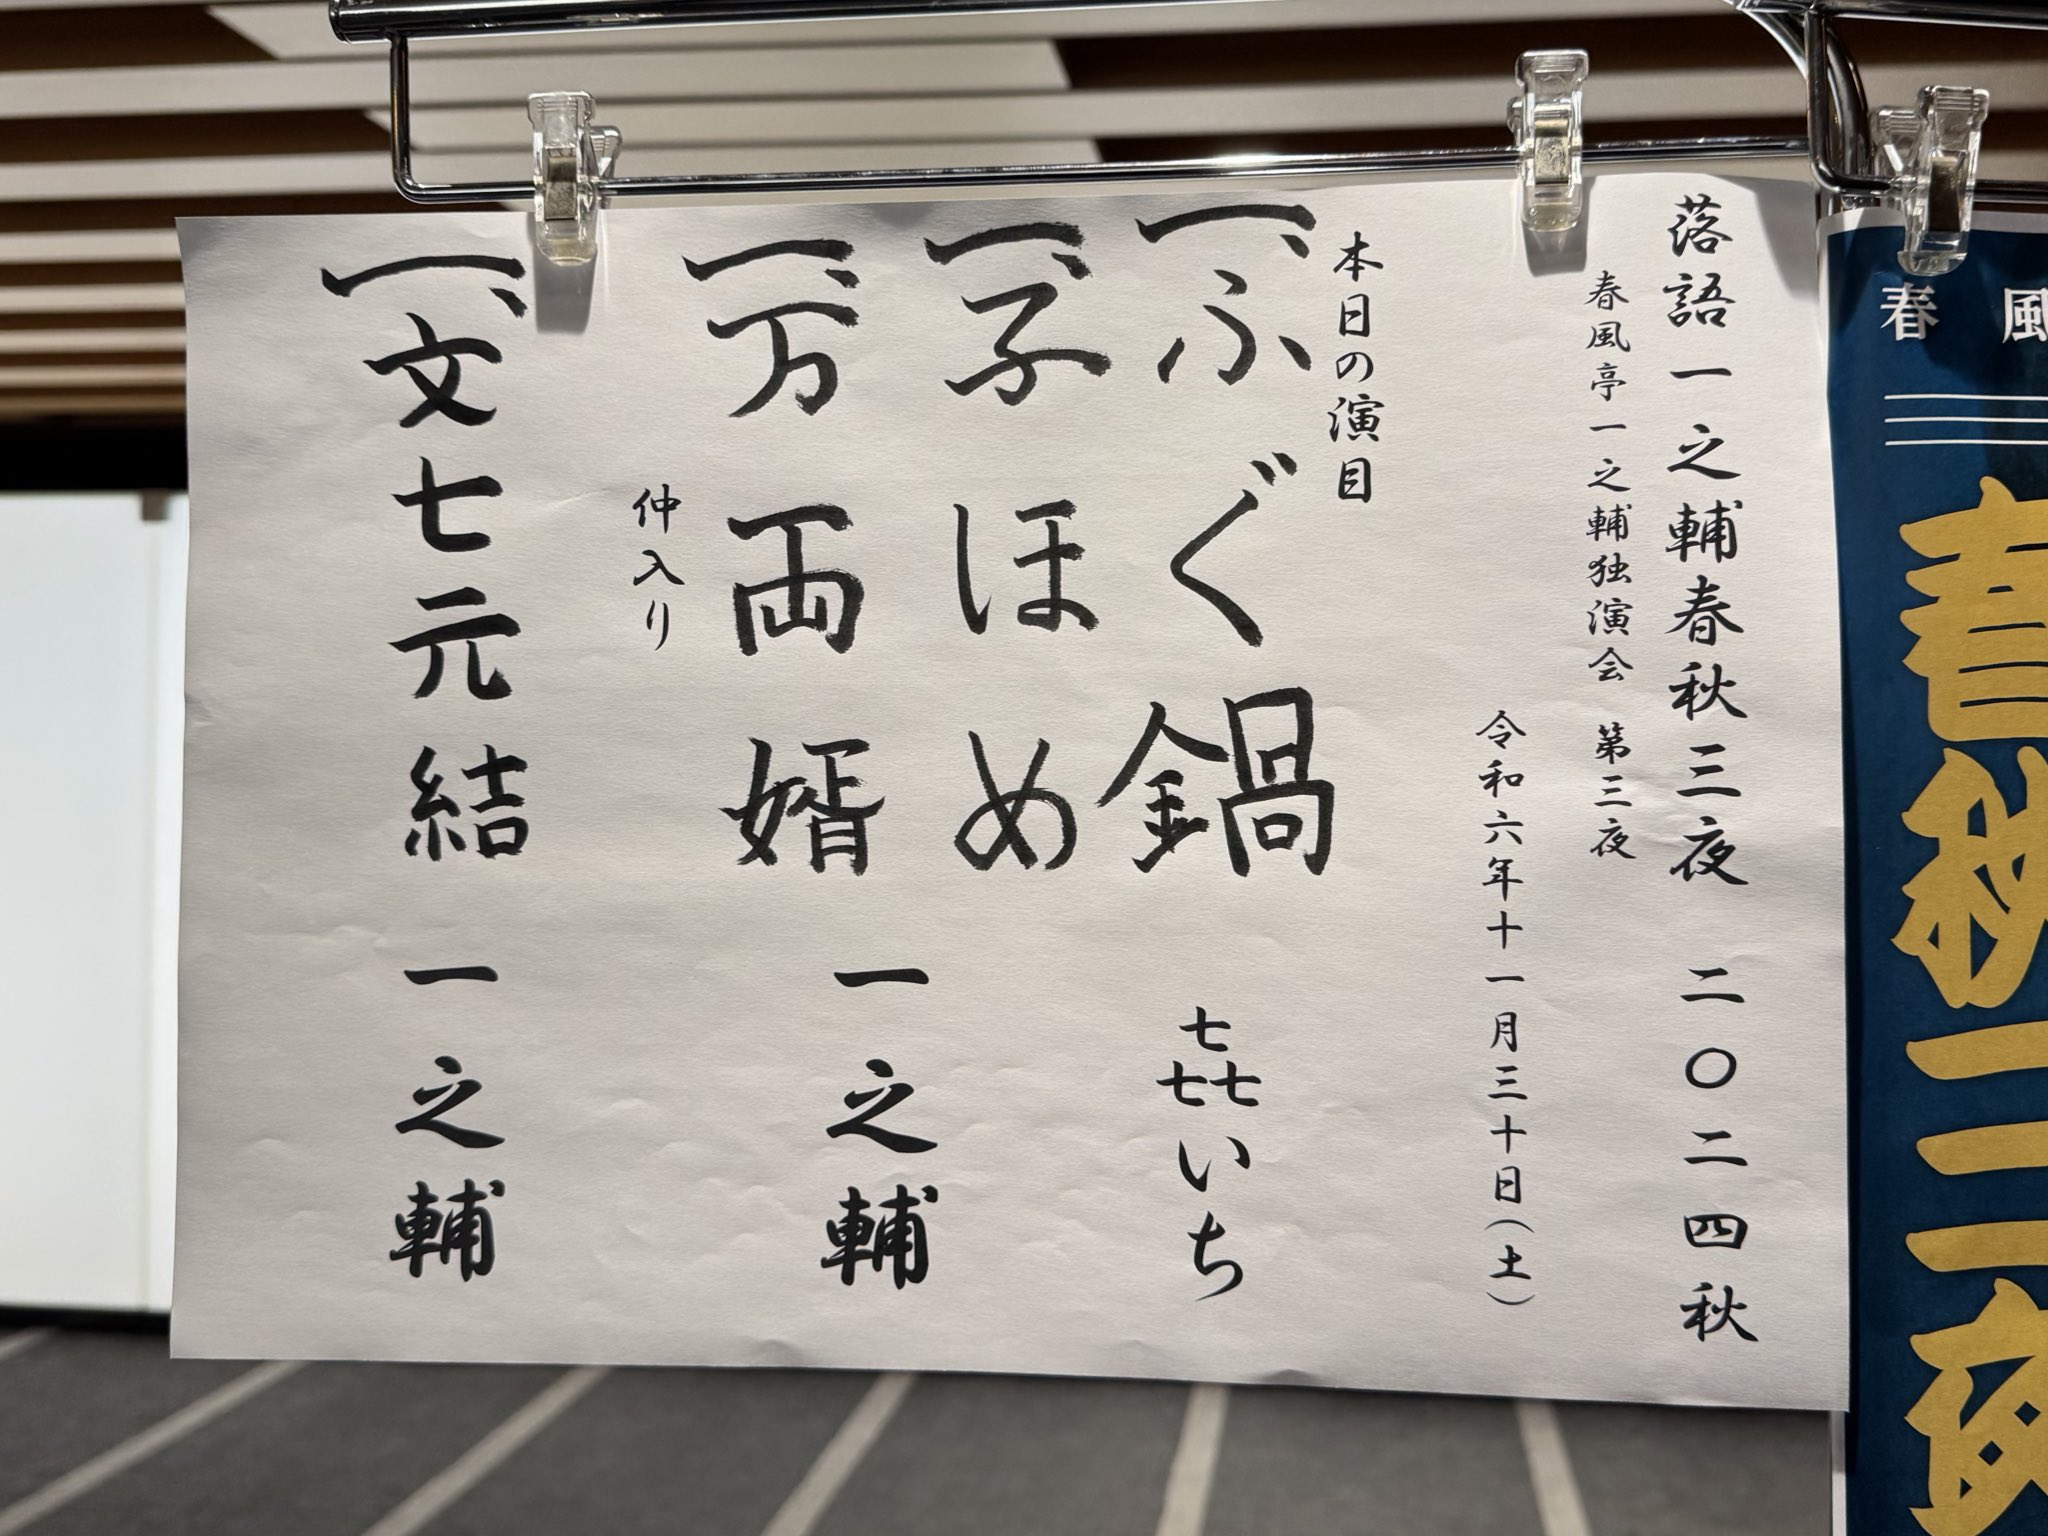 落語一之輔春秋三夜 二〇二四秋
春風亭一之輔独演会 第三夜
令和六年十一月三十日(土)
本日の演目
一、ふぐ鍋 㐂いち
一、子ほめ
一、万両婿 一之輔
仲入り
一、文七元結 一之輔
春風
春秋三夜